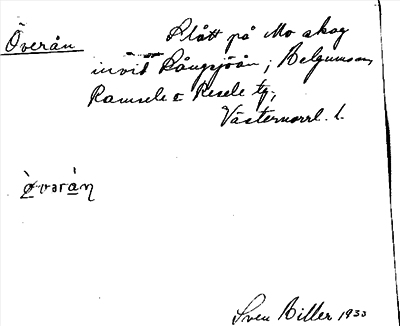 Överån
Slått på Mo skog
invid Långsjöån, Belgumson,
Ramsele o Resele tg.,
Västernorrl. l.
Sven Biller 1933